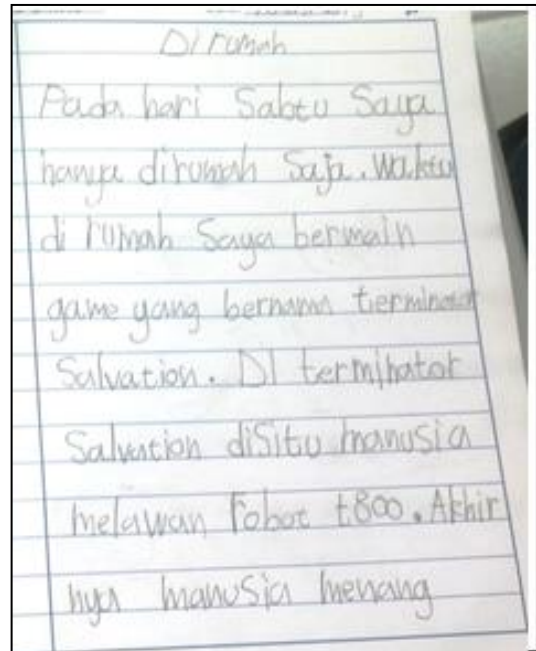 Di rumah
Pada hari Sabtu Saya
hanya dirumah Saja. Waktu
di rumah Saya bermain
game yang bernama terminator
Salvation. DI terminator
Salvation diSitu manusia
melawan robot t800. Akhir
nya manusia menang